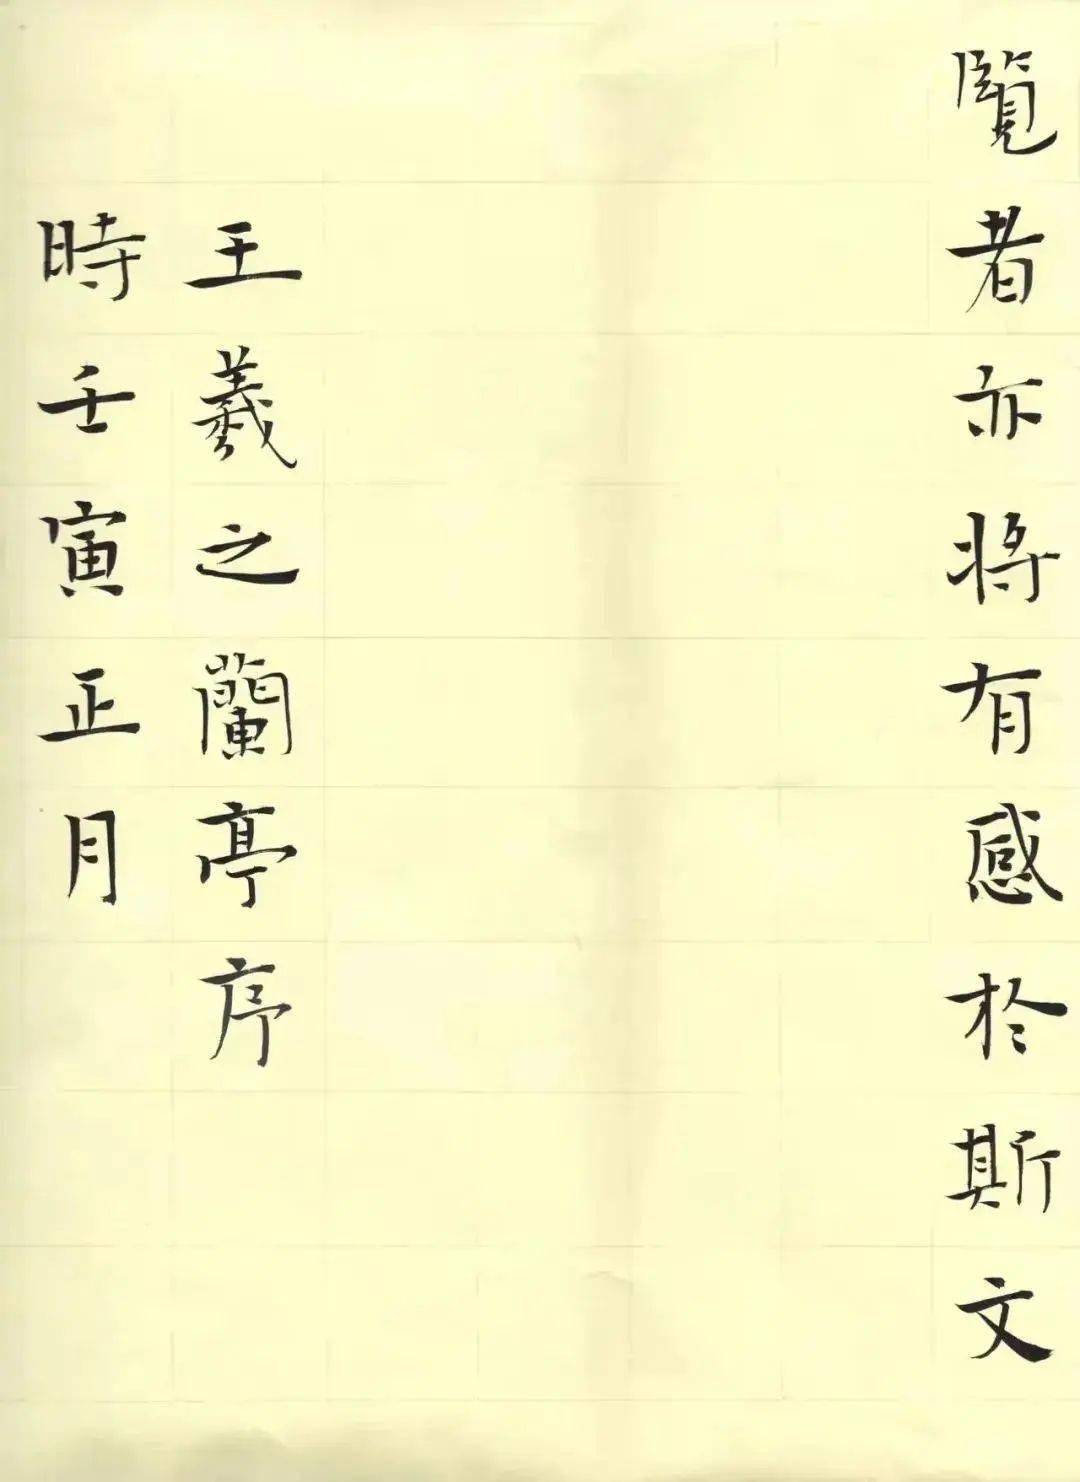 覧者亦将有感於斯文
王羲之蘭亭序
時壬寅正月